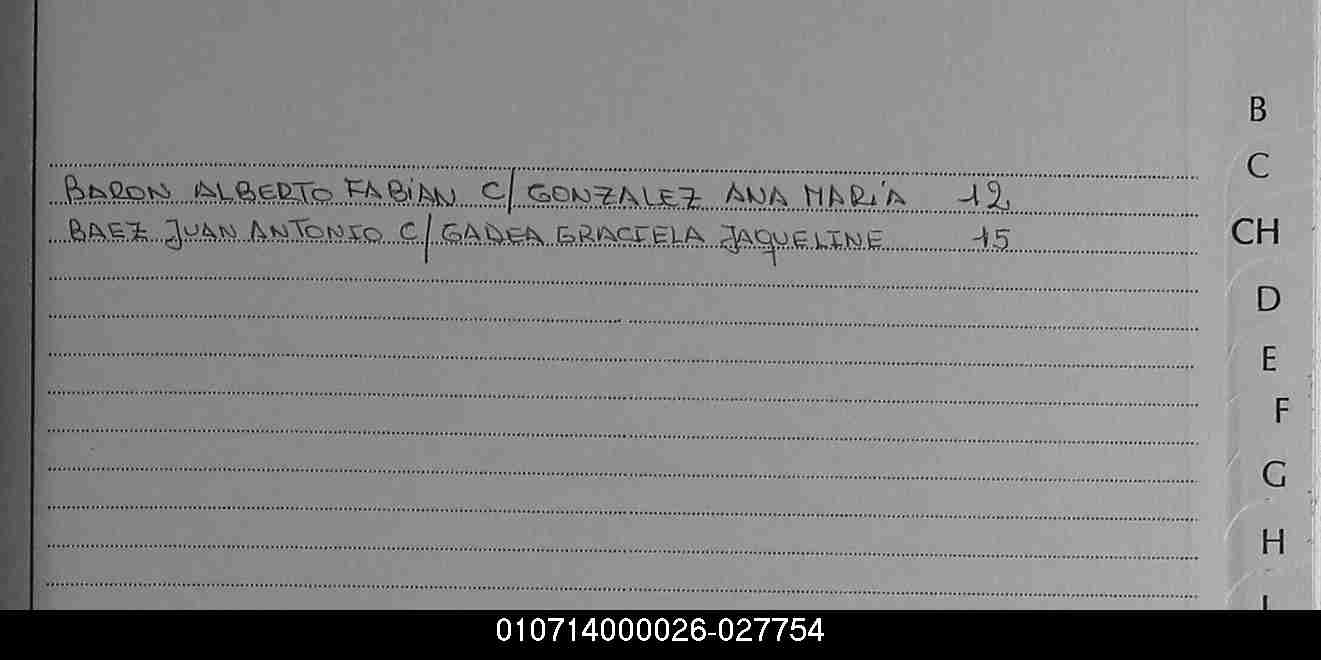 B
C
BARON ALBERTO FABIAN C/ GONZALEZ ANA MARIA 12
BAEZ JUAN ANTONIO C/ GADEA GRACIELA JAQUELINE 15
CH
D
E
F
G
H
010714000026-027754